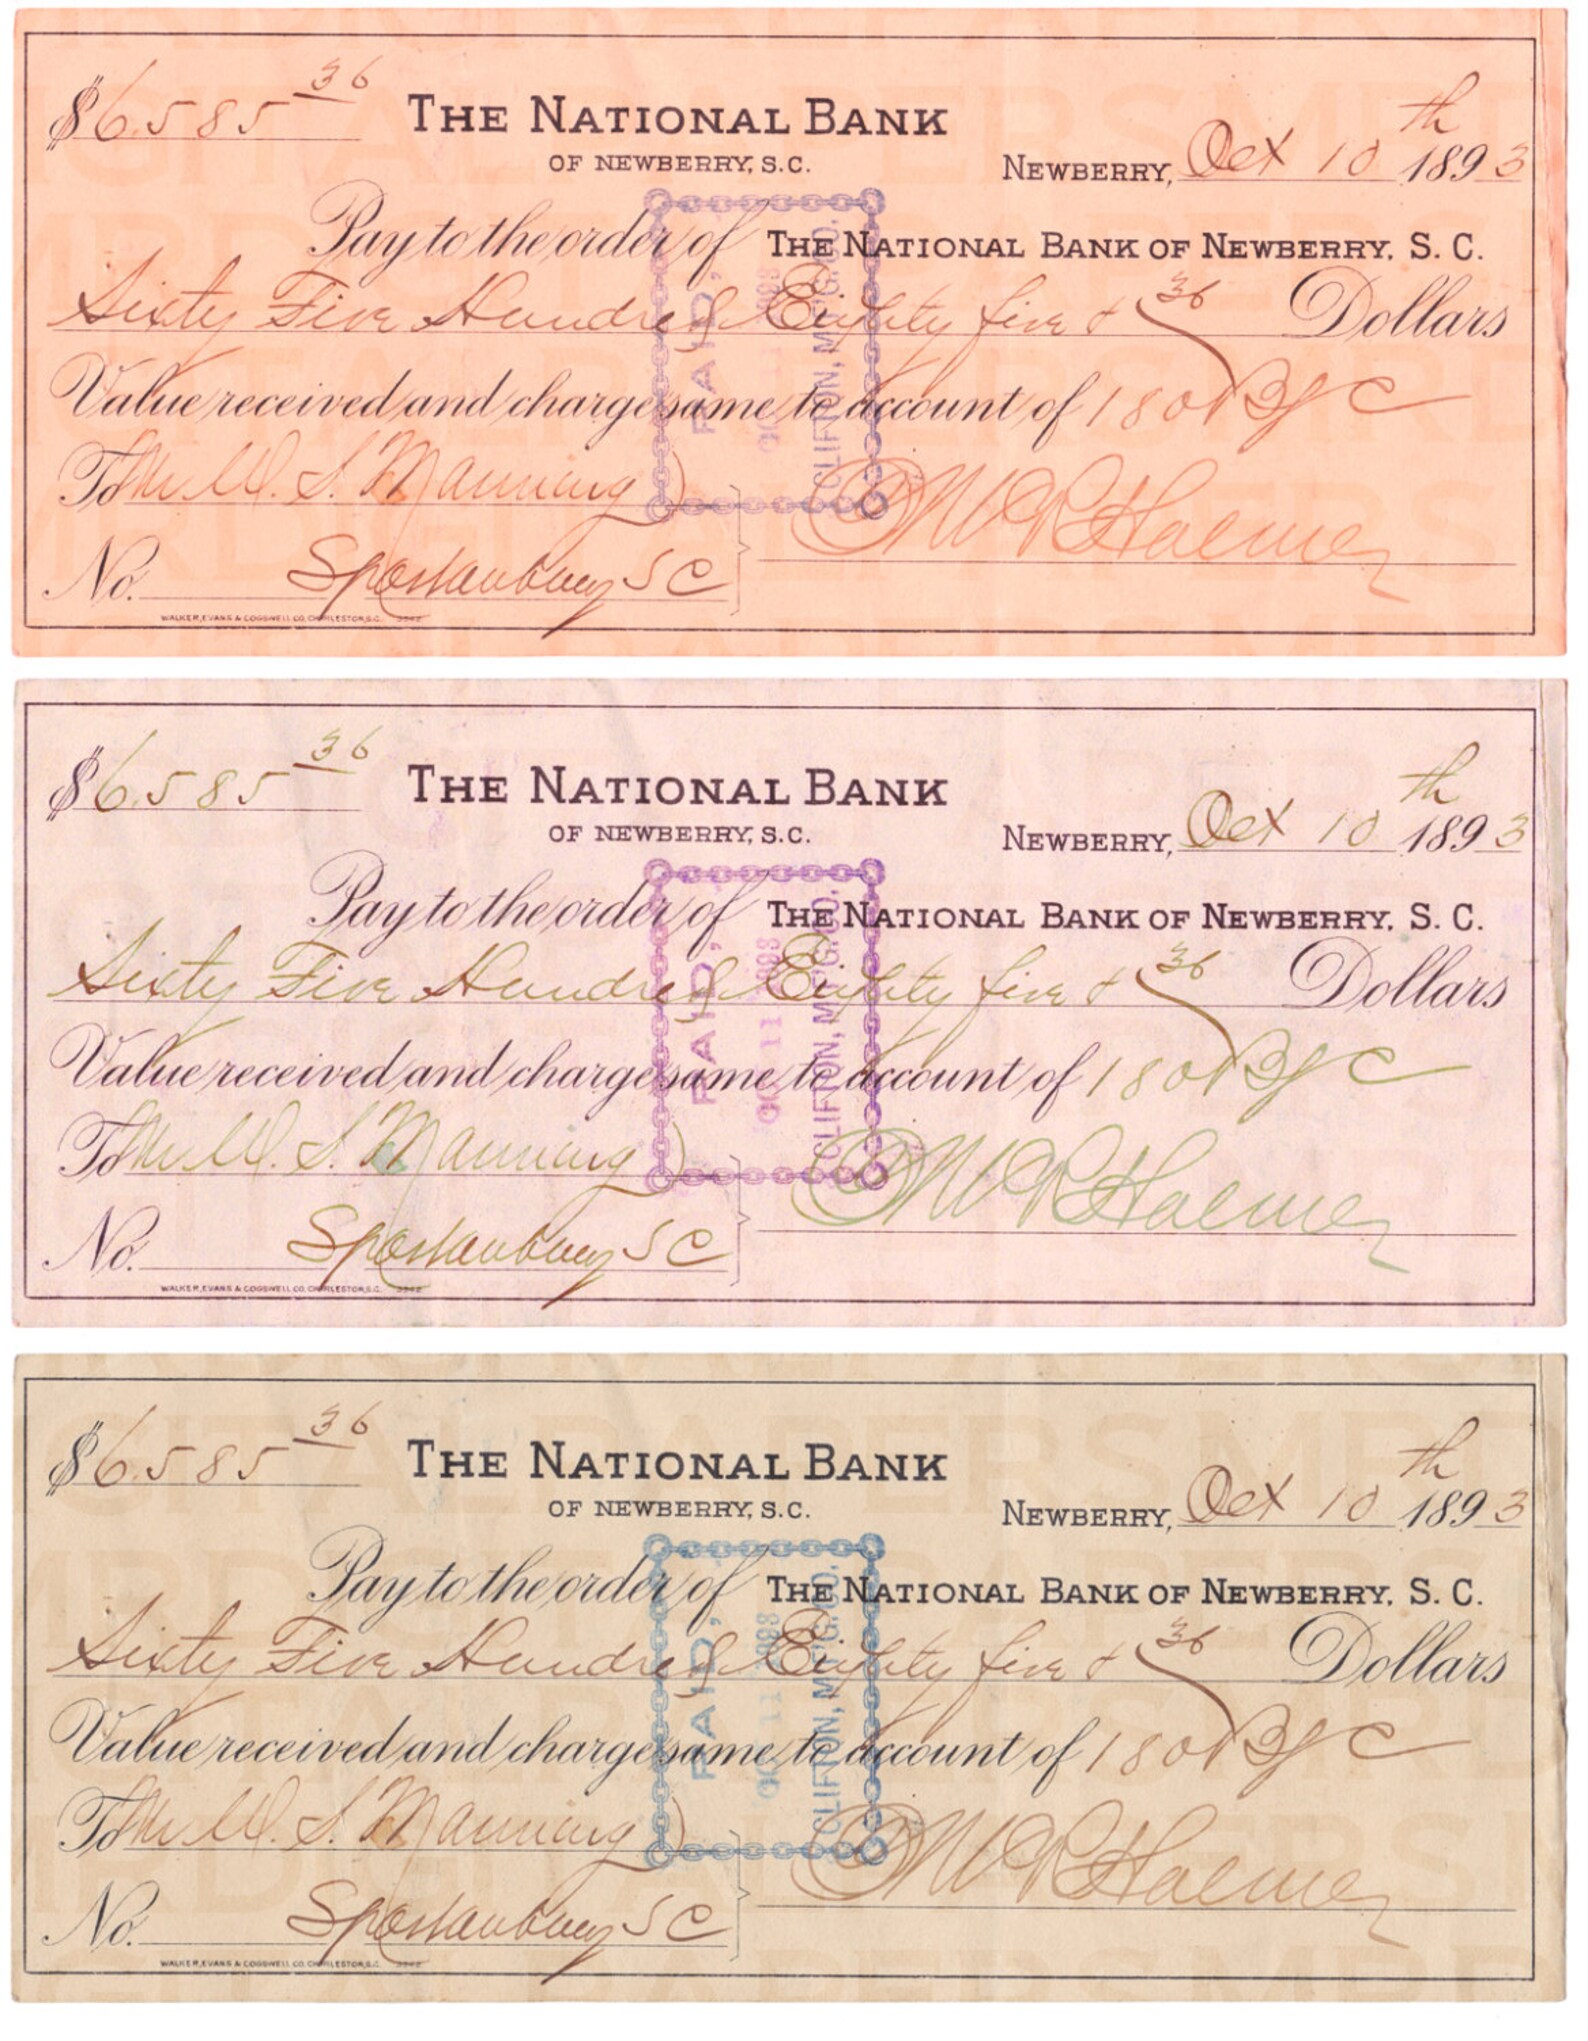 $6585 36
THE NATIONAL BANK
OF NEWBERRY, S.C.
NEWBERRY, Oct 10th 1893
Pay to the order of THE NATIONAL BANK OF NEWBERRY, S. C.
Sixty Five Hundred Eighty five & 36 Dollars
Value received and charge same to account of 180 B/C
To W. S. Manning
No. Spartanburg S C
WALKER, EVANS & COGSWELL CO. CHARLESTON, S.C.
PAID,
CLIFTON, M'F'G. CO.
$6585 36
THE NATIONAL BANK
OF NEWBERRY, S.C.
NEWBERRY, Oct 10th 1893
Pay to the order of THE NATIONAL BANK OF NEWBERRY, S. C.
Sixty Five Hundred Eighty five & 36 Dollars
Value received and charge same to account of 180 B/C
To W. S. Manning
No. Spartanburg S C
WALKER, EVANS & COGSWELL CO. CHARLESTON, S.C.
PAID,
OC 11 1893
CLIFTON, M'F'G. CO.
$6585 36
THE NATIONAL BANK
OF NEWBERRY, S.C.
NEWBERRY, Oct 10th 1893
Pay to the order of THE NATIONAL BANK OF NEWBERRY, S. C.
Sixty Five Hundred Eighty five & 36 Dollars
Value received and charge same to account of 180 B/C
To W. S. Manning
No. Spartanburg S C
WALKER, EVANS & COGSWELL CO. CHARLESTON, S.C.
PAID,
OC 11 1893
CLIFTON, M'F'G. CO.